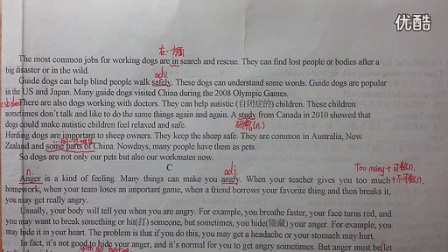 优酷
在…方面
The most common jobs for working dogs are in search and rescue. They can find lost people or bodies after a
big disaster or in the wild.
adv.
Guide dogs can help blind people walk safely. These dogs can understand some words. Guide dogs are popular
in the US and Japan. Many guide dogs visited China during the 2008 Olympic Games.
There are also dogs working with doctors. They can help autistic (自闭症的) children. These children
sometimes don't talk and like to do the same things again and again. A study from Canada in 2010 showed that
dogs could make autistic children feel relaxed and safe.
研究(n.)
Herding dogs are important to sheep owners. They keep the sheep safe. They are common in Australia, New
Zealand and some parts of China. Nowdays, many people have them as pets.
So dogs are not only our pets but also our workmates now.
C
n.
adj.
too many + 可数n.
Anger is a kind of feeling. Many things can make you angry. When your teacher gives you too much
homework, when your team loses an important game, when a friend borrows your favorite thing and then breaks it,
you may get really angry.
Usually, your body will tell you when you are angry. For example, you breathe faster, your face turns red, and
you may want to break something or hit(打) someone, but sometimes, you hide(隐藏) your anger. For example, you
may hide it in your heart. The problem is that if you do this, you may get a headache or your stomach may hurt.
In fact, it's not good to hide your anger, and it's normal for you to get angry sometimes. But anger must be let